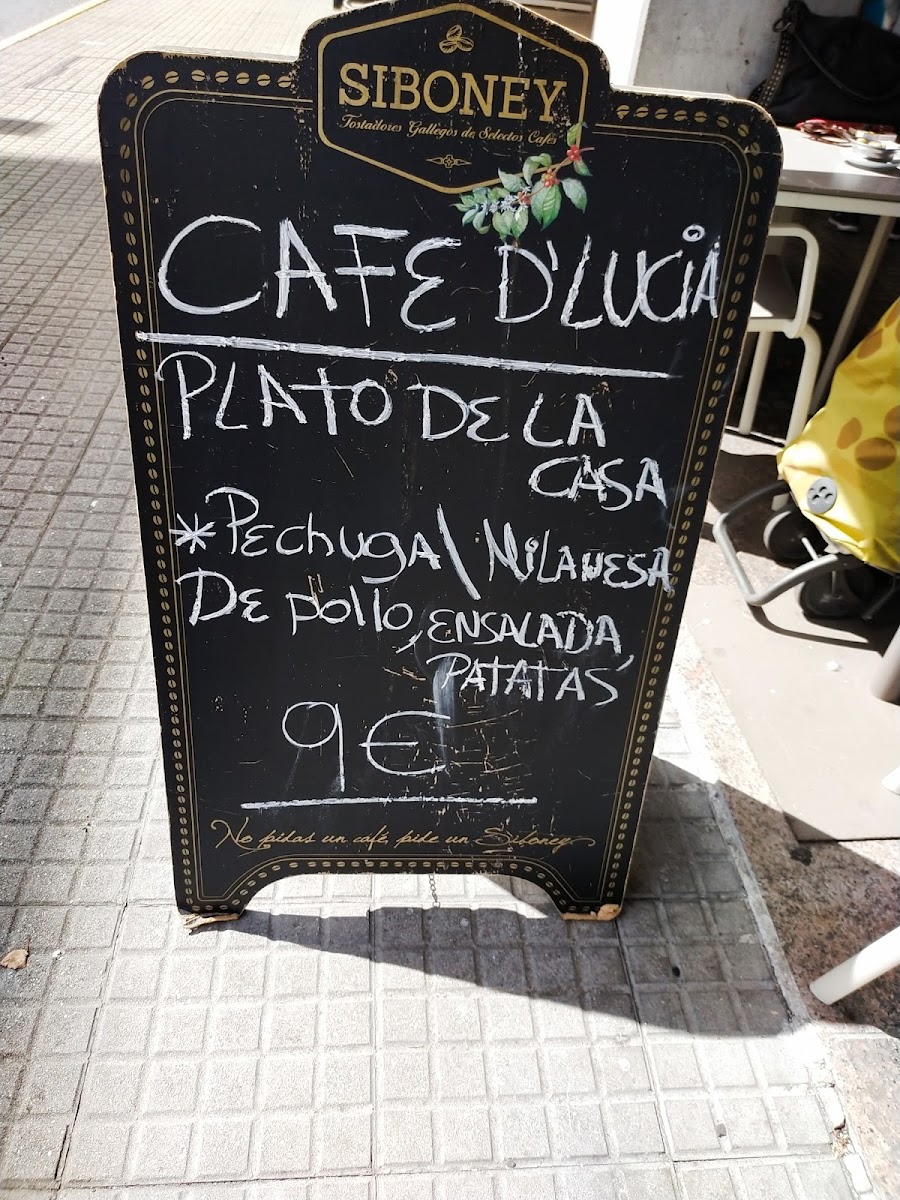 SIBONEY
Tostadores Gallegos de Selectos Cafés
CAFE D'LUCIA
PLATO DE LA
CASA
*PEchUGA\ MILANESA
DE pollo, ENSALADA,
PATATAS
9€
No pidas un café, pide un Siboney